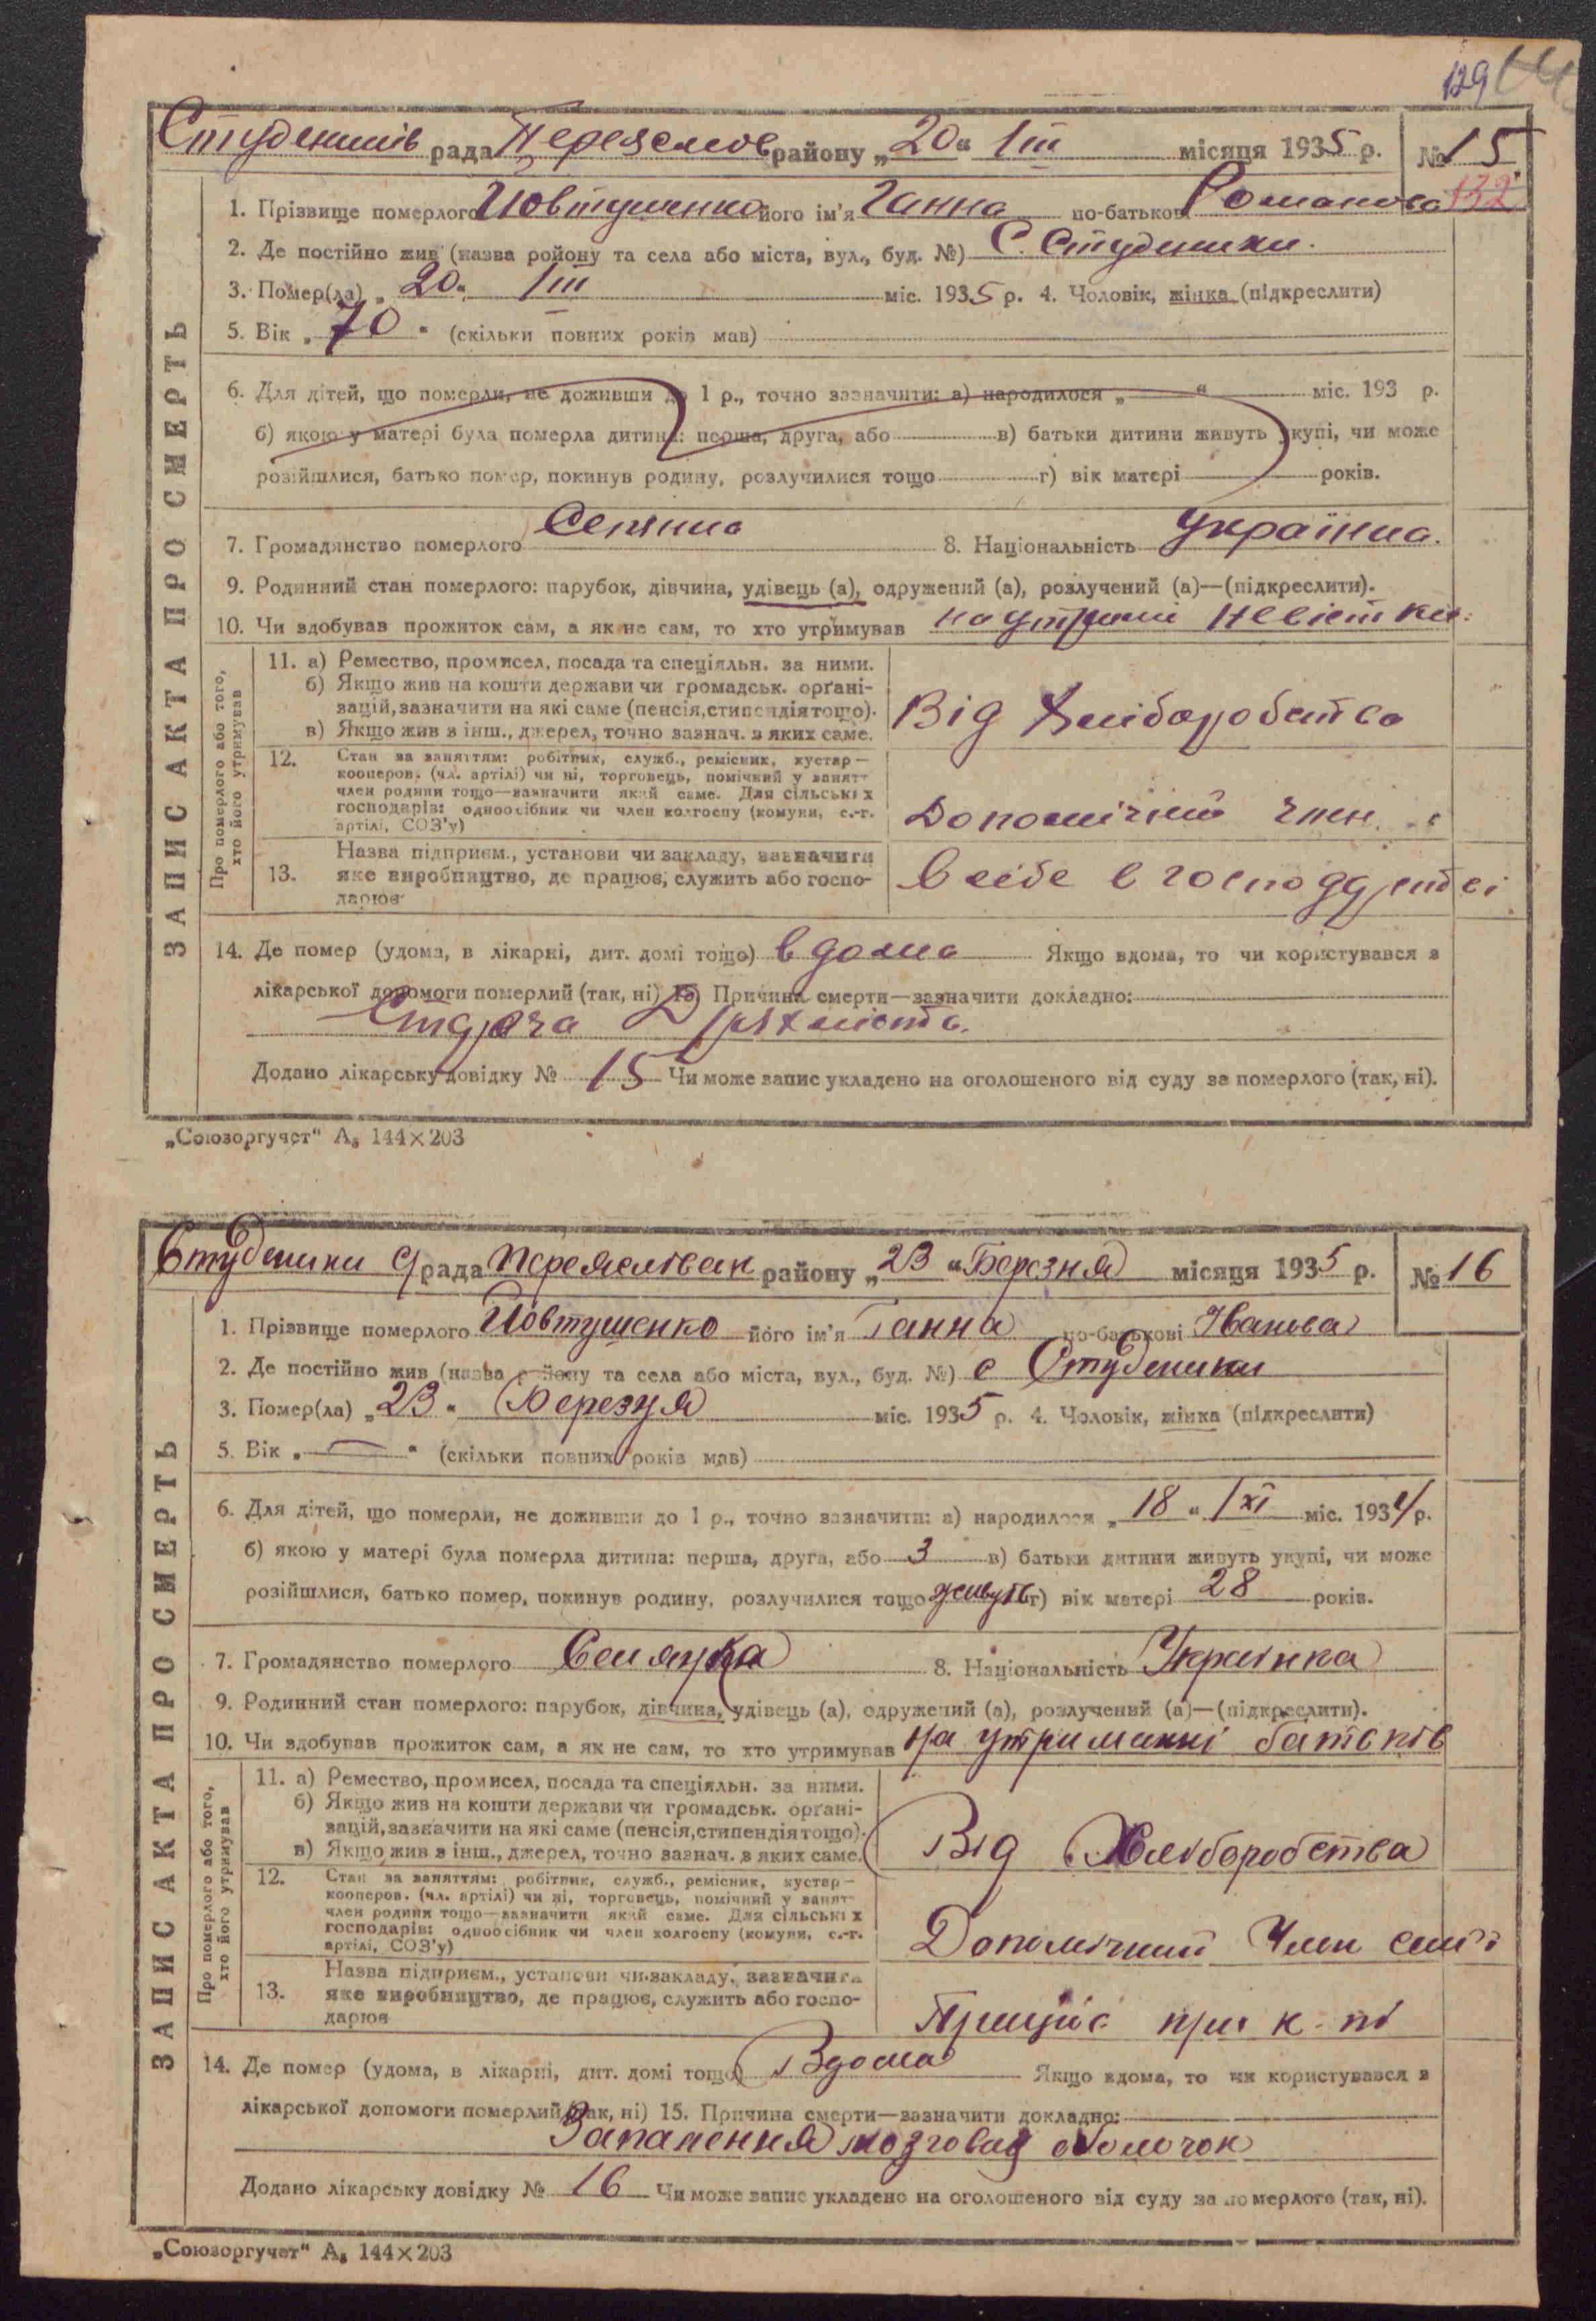 129
Студеників рада Переяслов району „20“ III місяця 1935 р. № 15
132
1. Прізвище померлого Йовтушенко його ім'я Ганна по-батькові Романова
2. Де постійно жив (назва ройону та села або міста, вул., буд. №) С. Студеники.
3. Помер(ла) „20“ III міс. 1935 р. 4. Чоловік, жінка (підкреслити)
5. Вік „70“ (скільки повних років мав)
6. Для дітей, що померли, не доживши до 1 р., точно зазначити: а) народилося „ “ міс. 193 р.
б) якою у матері була померла дитина: перша, друга, або в) батьки дитини живуть укупі, чи може
розійшлися, батько помер, покинув родину, розлучилися тощо г) вік матері років.
7. Громадянство померлого 8. Національність Українка.
9. Родинний стан померлого: парубок, дівчина, удівець (а), одружений (а), розлучений (а)—(підкреслити).
10. Чи здобував прожиток сам, а як не сам, то хто утримував на утрими невістки.
ЗАПИС АКТА ПРО СМЕРТЬ
Про померлого або того, хто його утримував
11. а) Ремество, промисел, посада та спеціяльн. за ними.
б) Якщо жив на кошти держави чи громадськ. орґані-
зацій, зазначити на які саме (пенсія, стипендія тощо).
в) Якщо жив з інш., джерел, точно зазнач. з яких саме.
Від Хліборобства
12. Стан за заняттям: робітник, служб., ремісник, кустар—
кооперов. (чл. артілі) чи ні, торговець, помічний у занят-
член родини тощо—зазначити який саме. Для сільських
господарів: одноосібник чи член колгоспу (комуни, с.-г.
артілі, СОЗ'у)
Допомічний член
13. Назва підприєм., установи чи закладу, зазначити
яке виробництво, де працює, служить або госпо-
дарює
В себе в господарстві
14. Де помер (удома, в лікарні, дит. домі тощо) вдома Якщо вдома, то чи користувався з
лікарської допомоги померлий (так, ні) 15. Причина смерти—зазначити докладно:
Старча Дряхлість.
Додано лікарську довідку № 15 Чи може запис укладено на оголошеного від суду за померлого (так, ні).
„Союзоргучет“ А₅ 144×203
Студеники с/рада Переяслівськ району „23“ Березня місяця 1935 р. № 16
1. Прізвище померлого Йовтушенко його ім'я Ганна по-батькові Іванова
2. Де постійно жив (назва району та села або міста, вул., буд. №) с Студеники
3. Помер(ла) „23“ Березня міс. 1935 р. 4. Чоловік, жінка (підкреслити)
5. Вік „—“ (скільки повних років мав)
6. Для дітей, що померли, не доживши до 1 р., точно зазначити: а) народилося „18“ XI міс. 1934 р.
б) якою у матері була померла дитина: перша, друга, або 3 в) батьки дитини живуть укупі, чи може
розійшлися, батько помер, покинув родину, розлучилися тощо живуть г) вік матері 28 років.
7. Громадянство померлого Селянка 8. Національність Українка
9. Родинний стан померлого: парубок, дівчина, удівець (а), одружений (а), розлучений (а)—(підкреслити).
10. Чи здобував прожиток сам, а як не сам, то хто утримував на утриманні батьків
ЗАПИС АКТА ПРО СМЕРТЬ
Про померлого або того, хто його утримував
11. а) Ремество, промисел, посада та спеціяльн. за ними.
б) Якщо жив на кошти держави чи громадськ. орґані-
зацій, зазначити на які саме (пенсія, стипендія тощо).
в) Якщо жив з інш., джерел, точно зазнач. з яких саме.
Від Хліборобства
12. Стан за заняттям: робітник, служб., ремісник, кустар—
кооперов. (чл. артілі) чи ні, торговець, помічний у занят-
член родини тощо—зазначити який саме. Для сільських
господарів: одноосібник чи член колгоспу (комуни, с.-г.
артілі, СОЗ'у)
Допомічний Член сім'ї
13. Назва підприєм., установи чи закладу, зазначити
яке виробництво, де працює, служить або госпо-
дарює
Працює при к-пі
14. Де помер (удома, в лікарні, дит. домі тощо) Вдома Якщо вдома, то чи користувався з
лікарської допомоги померлий (так, ні) 15. Причина смерти—зазначити докладно:
Запалення мозгових оболочок
Додано лікарську довідку № 16 Чи може запис укладено на оголошеного від суду за померлого (так, ні).
„Союзоргучет“ А₅ 144×203